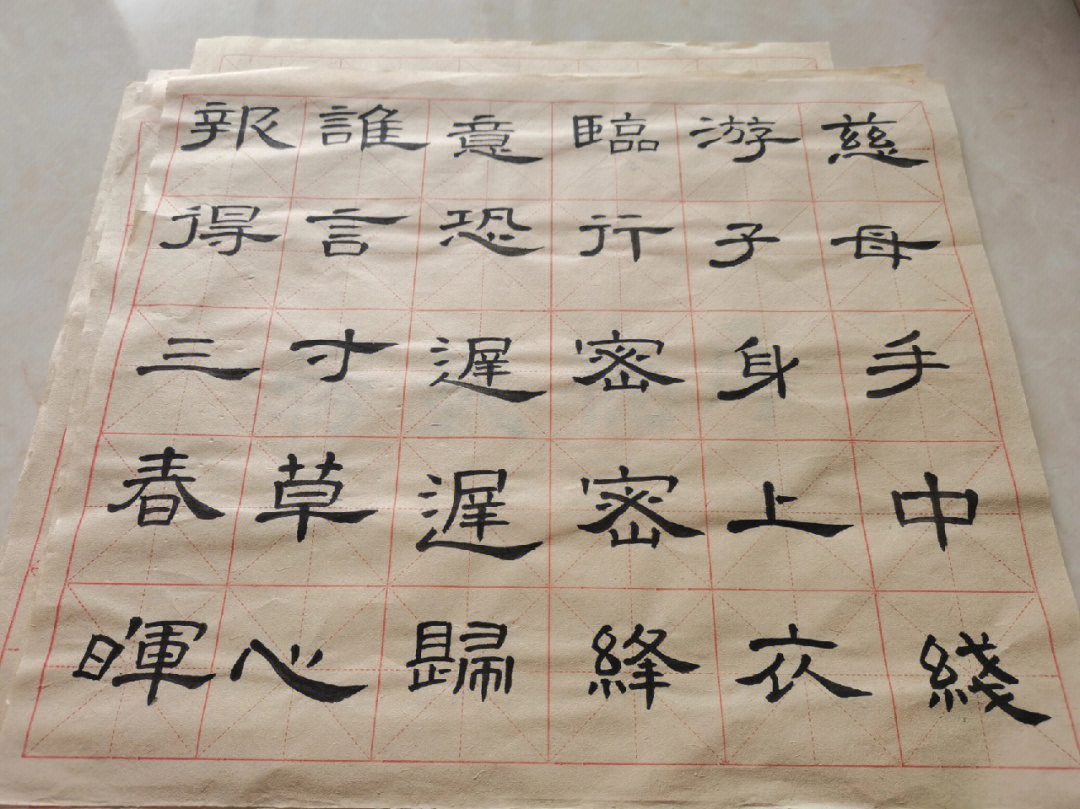 慈母手中綫
游子身上衣
臨行密密綘
意恐遲遲歸
誰言寸草心
報得三春暉